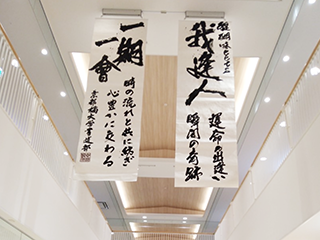 我逢人
運命の出逢い
瞬間の奇跡
一期
一會
時の流れと共に紡ぎ
心豊かに交わる
京都橘大学書道部